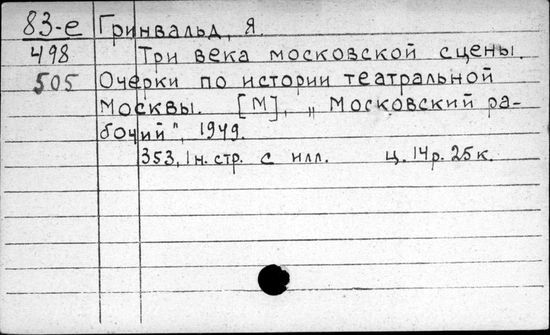 83-е Гринвальд, Я.
498 Три века московской сцены.
505 Очерки по истории театральной
Москвы. [М], „Московский ра-
бочий", 1949.
353, 1 н. стр. с илл. ц. 14 р. 25 к.